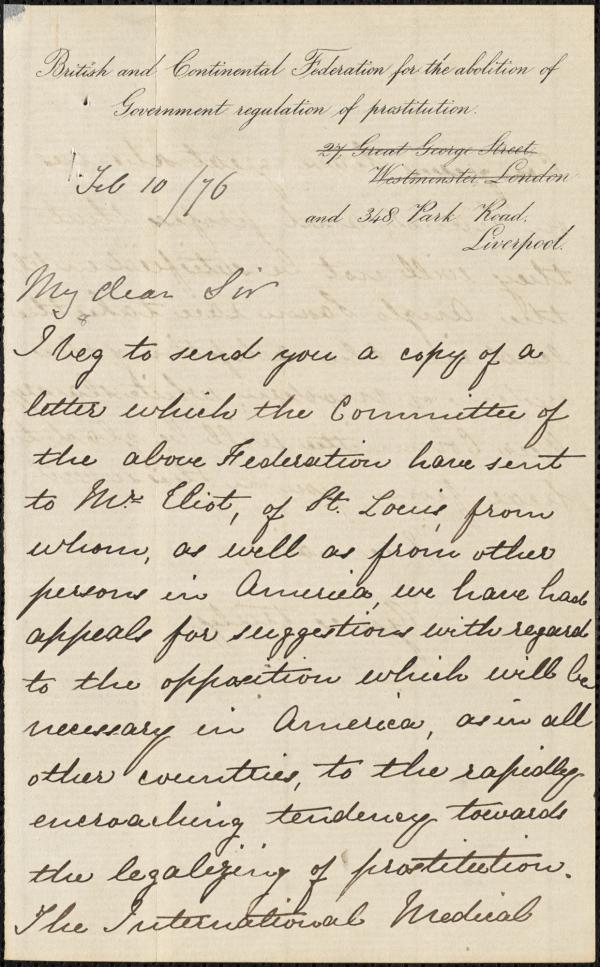 British and Continental Federation for the abolition of
Government regulation of prostitution.
27, Great George Street,
Westminster London
and 348, Park Road,
Liverpool.
Feb 10/76
My dear Sir
I beg to send you a copy of a
letter which the Committee of
the above Federation have sent
to Mrs Eliot, of St. Louis, from
whom, as well as from other
persons in America, we have had
appeals for suggestions with regard
to the opposition which will be
necessary in America, as in all
other counties, to the rapidly
encroaching tendency towards
the legalizing of prostitution.
The International Medical